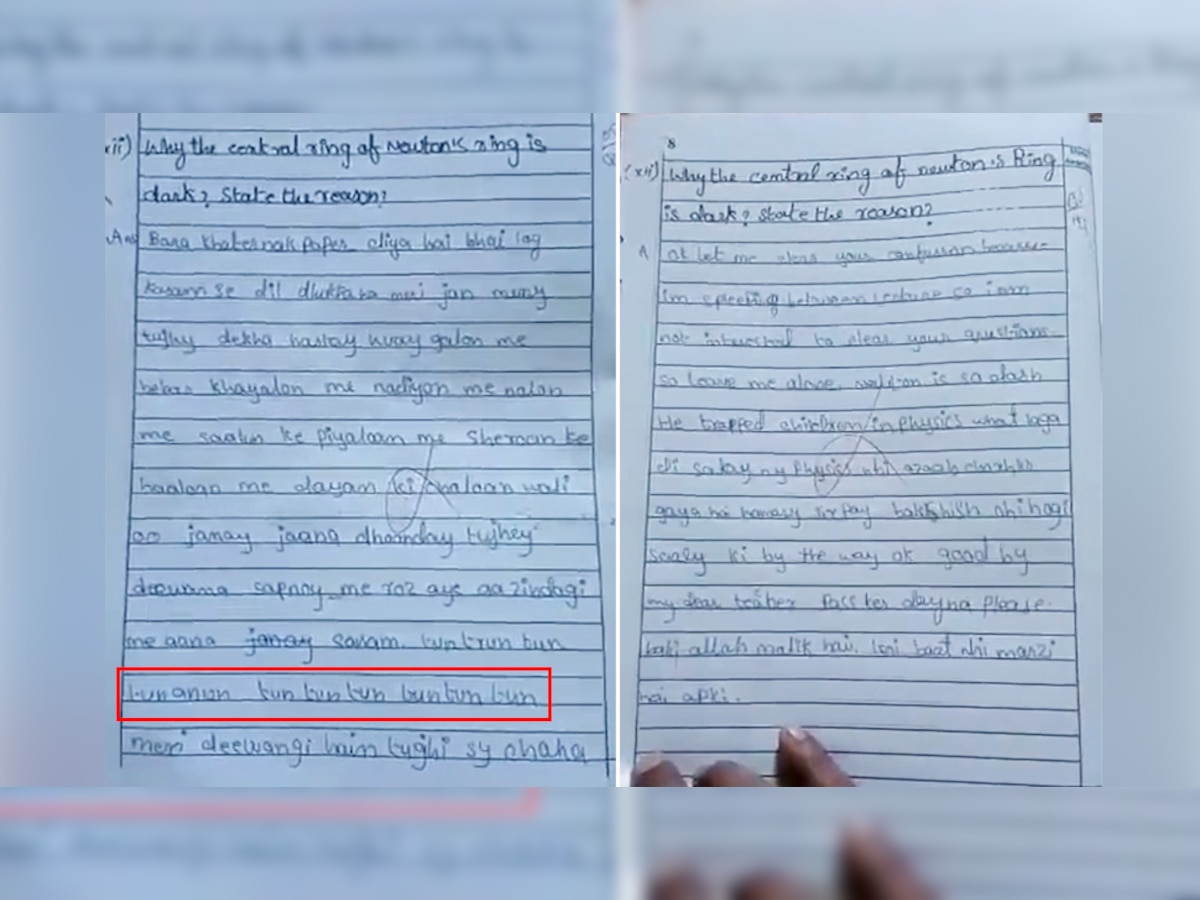 xii) Why the central ring of Newton's ring is
dark? State the reason?
Ans Bara khaternak paper diya hai bhai log
kasam se dil dhukha ha meri jan meny
tujhy dekha hastay huay galon me
khayalon me nadiyon me nalon
me saalun ke piyaloan me Sheroan ke
baaloan me dayan ki chaloan wali
oo janay jaana dhoonday tujhey
deewana sapnoy me roz aye aa zindagi
me aana janay sanam. tun trun tun
tun anun tun tun tun tun tun tun
meri deewangi hain tujhi sy chaha
8
(xii) Why the central ring of newton's Ring
is dark? State the reason?
A ok let me clear your confusion because
im between lecture so i am
not interested to clear your questions
so leave me alone. is so
He trapped children in physics what loga
di salay ny physics nhi azaab
gaya hai hamasy bakkshish nhi hogi
saaly ki by the way ok good by
my dear teaher pass ker dayna please.
baki allah malik hai. koi baat nhi marzi
hai apki.